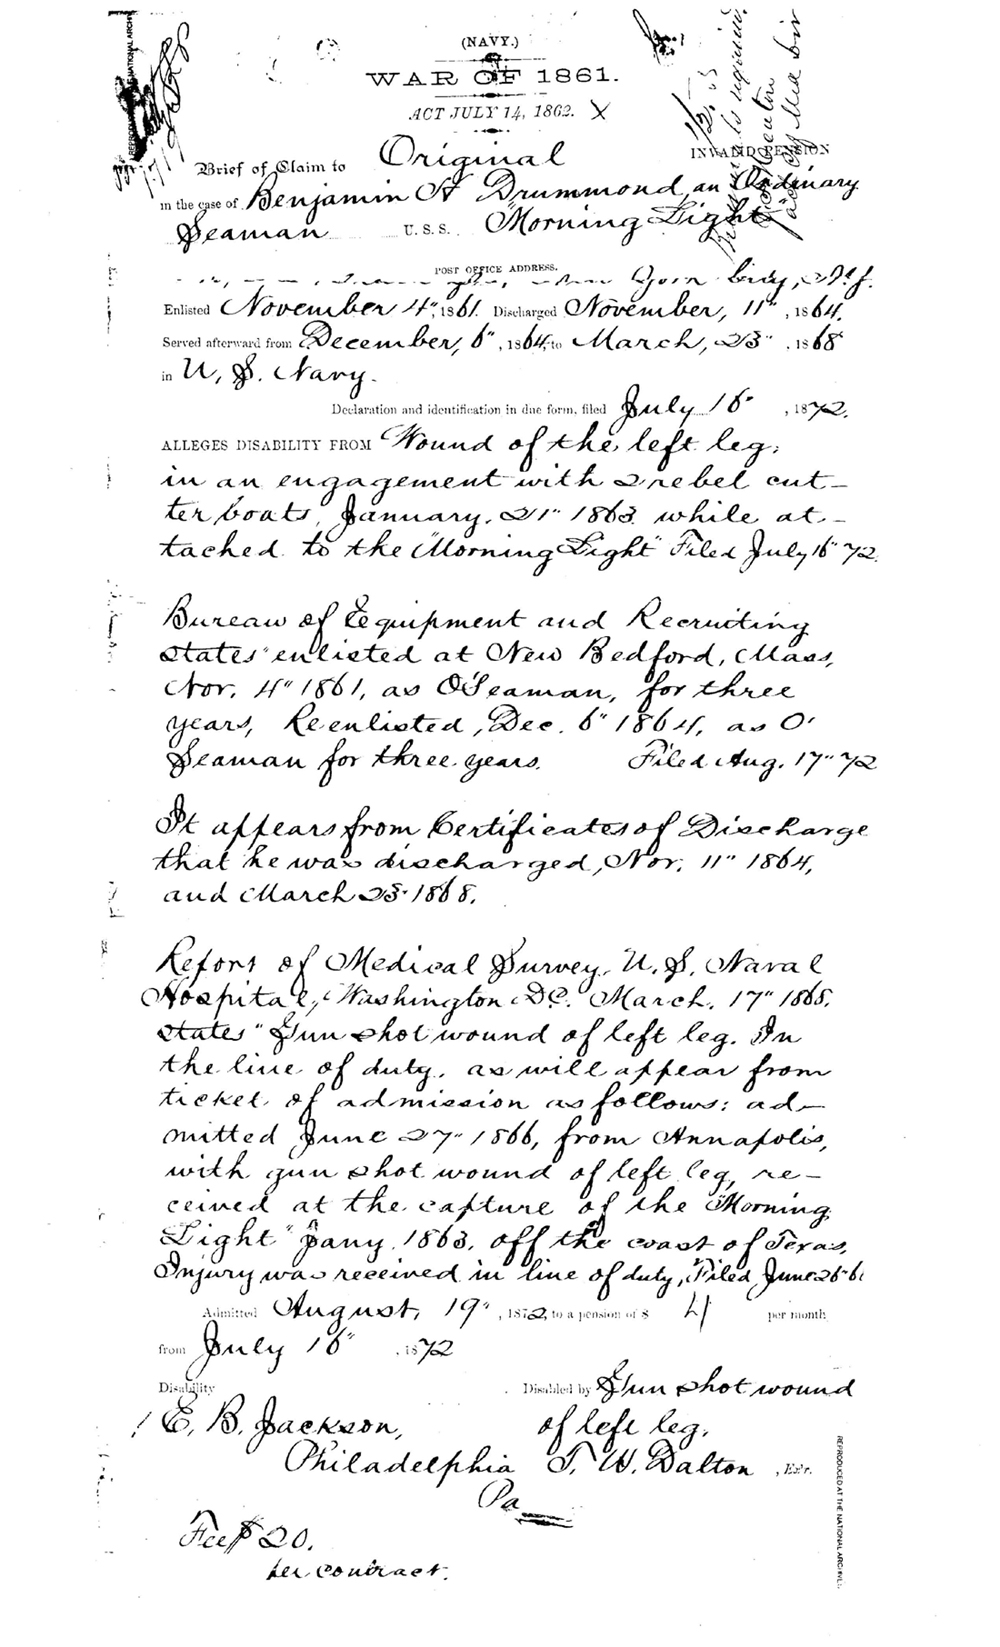 (NAVY.)
WAR OF 1861.
ACT JULY 14, 1862. X
INVALID PENSION
Brief of Claim to Original
in the case of Benjamin H Drummond, an Ordinary
Seaman U. S. S. "Morning Light"
POST OFFICE ADDRESS.
N. J.
Enlisted November 4", 1861. Discharged November, 11", 1864.
Served afterward from December, 6", 1864, to March, 23", 1868
in U. S. Navy.
Declaration and identification in due form, filed July 16", 1872.
ALLEGES DISABILITY FROM Wound of the left leg;
in an engagement with 2 rebel cut-
ter boats, January, 21" 1863. while at-
tached to the "Morning Light" Filed July 16" 72.
Bureau of Equipment and Recruiting
states "enlisted at New Bedford, Mass,
Nov. 4" 1861, as O'Seaman, for three
years, Reenlisted, Dec. 6" 1864, as O'
Seaman for three years. Filed Aug. 17" 72
It appears from Certificates of Discharge
that he was discharged, Nov. 11" 1864,
and March 23" 1868.
Report of Medical Survey, U. S. Naval
Hospital, Washington D.C. March. 17" 1868.
states "Gun shot wound of left leg. In
the line of duty, as will appear from
ticket of admission as follows: ad-
mitted June 27" 1866, from Annapolis,
with gun shot wound of left leg, re-
ceived at the capture of the "Morning
Light" Jany. 1863, off the coast of Texas,
Injury was received in line of duty, Filed June 26"
Admitted August, 19", 1872, to a pension of $ 4 per month
from July 16", 1872
Disability Disabled by Gun shot wound
E. B. Jackson, of left leg.
Philadelphia T. W. Dalton, Exr.
Pa
Fee $20.
per contract.
REPRODUCED AT THE NATIONAL ARCHIVES